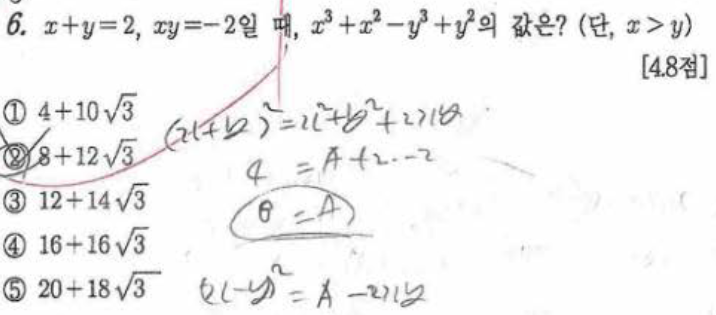 6. x+y=2, xy=-2일 때, x³+x²-y³+y²의 값은? (단, x>y)
[4.8점]
① 4+10√3
② 8+12√3
③ 12+14√3
④ 16+16√3
⑤ 20+18√3
(x+y)²=x²+y²+2xy
4 = A+2·-2
8 = A
(x-y)² = A-2xy